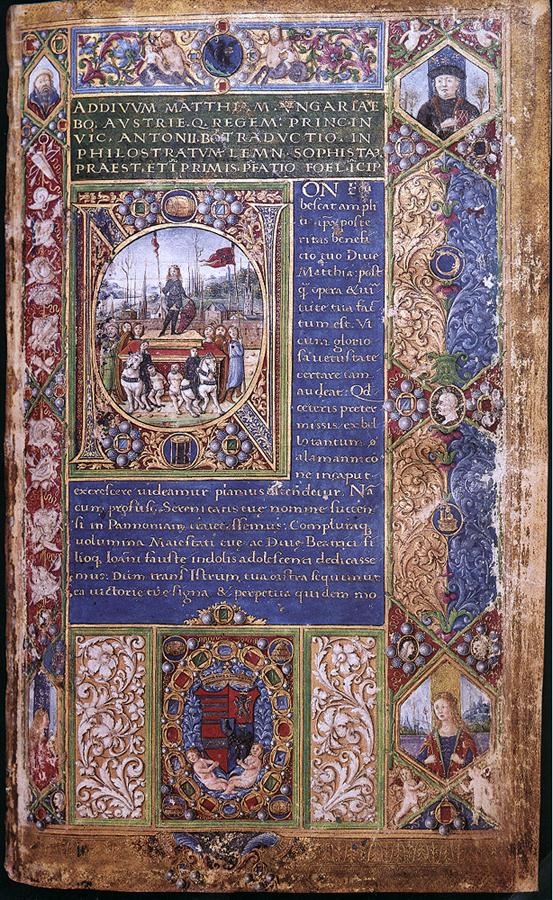 AD DIVVM MATTHIAM. M. VNGARIAE
BO. AVSTRIE. Q. REGEM: PRINC. IN
VIC. ANTONII. BO. TRADVCTIO. IN
PHILOSTRATVM. LEMN. SOPHISTAM.
PRAEST. ET I PRIMIS. PFATIO FOELICIP
ON E
bescat ampli
poste
ritas benefi
cio tuo Diue
Matthia: post
q opera & uir
tute tua fac
tum est. Vt
cum glorio
sa uetustate
certare iam
audeat: Qd
ceteris preter
missis, ex bel
lo tantum
alamannico
ne in caput
excrescere uideamur planius ostendetur. Na
cum prosus, Serenitatis tuę nomine succen
si in Pannoniam uenissemus: Compluraq
uolumina Maiestati tuę ac Diuę Beatrici fi
lioq, Ioani faustę indolis adolescenti dedicasse
mus: Dum trans Istrum, tua castra sequimur
ea uictorię tuę signa & perpetua quidem mo